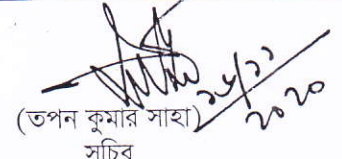 ১৮/১১
২০২০
(তপন কুমার সাহা)
সচিব